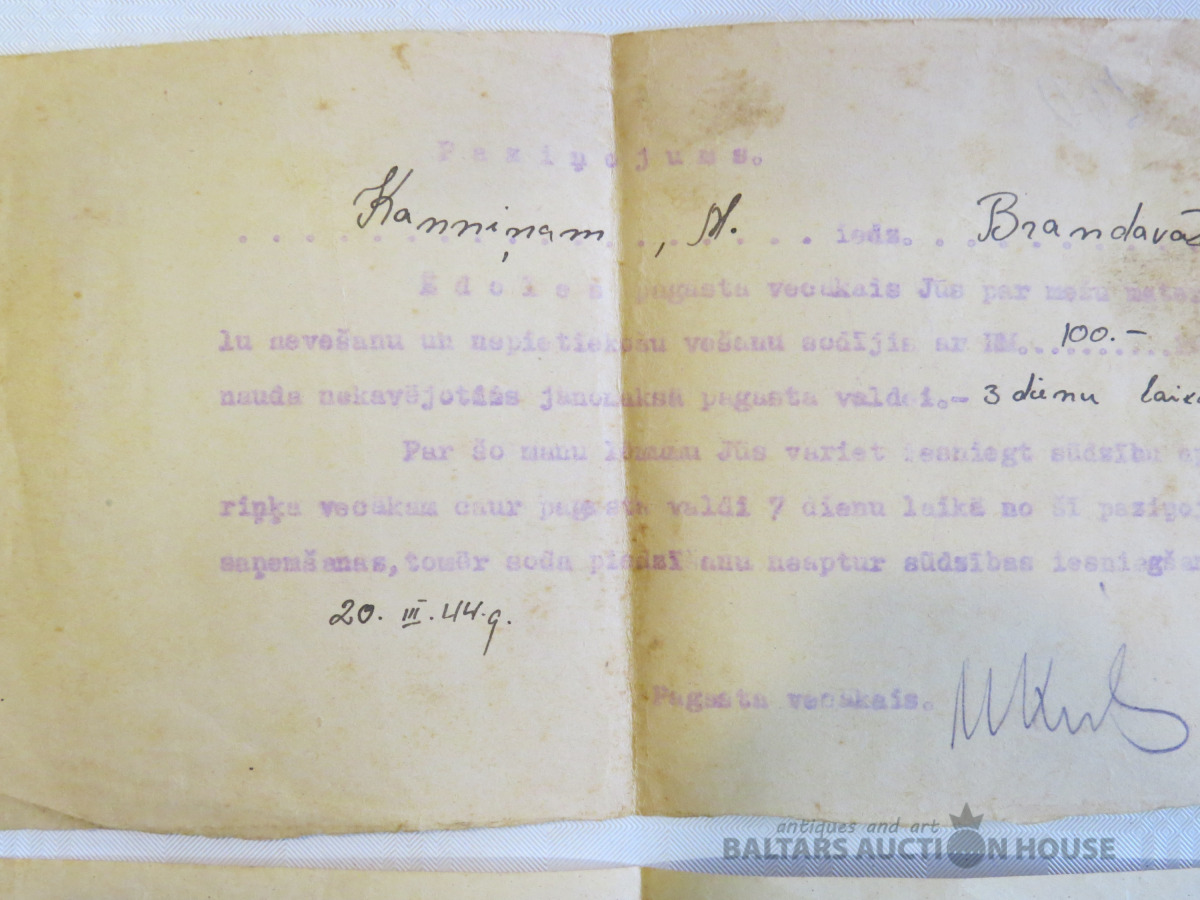 Paziņojums.
Kanniņam, A. iedz. Brandavās
Ēdoles pagasta vecākais Jūs par mežu mater
lu nevešanu un nepietiekošu vešanu sodījis ar RM. 100.-
nauda nekavējotiēs jānomaksā pagasta valdei.- 3 dienu laikā
Par šo manu lēmumu Jūs variet iesniegt sūdzību ap
riņķa vecākam caur pagasta valdi 7 dienu laikā no šī paziņoj
saņemšanas, tomēr soda piedzīšanu neaptur sūdzības iesniegšan
20. III. 44. g.
Pagasta vecākais.
antiques and art
BALTARS AUCTION HOUSE